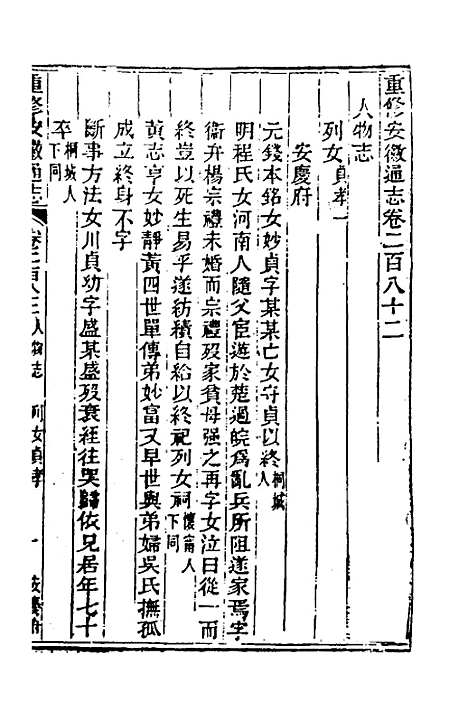 重修安徽通志卷二百八十二
人物志
列女貞孝一
安慶府
元錢本銘女妙貞字某某亡女守貞以終桐城人
明程氏女河南人隨父宦遊於楚過皖為亂兵所阻遂家焉字
衞弁楊宗禮未婚而宗禮歿家貧母强之再字女泣曰從一而
終豈以死生易乎遂紡積自給以終祀列女祠懷甯人下同
黃志亨女妙靜黃四世單傳弟妙富又早世與弟婦吳氏撫孤
成立終身不字
斷事方法女川貞幼字盛某盛歿衰絰往哭歸依兄居年七十
卒桐城人下同
重修安徽通志 人物志 列女貞孝 一